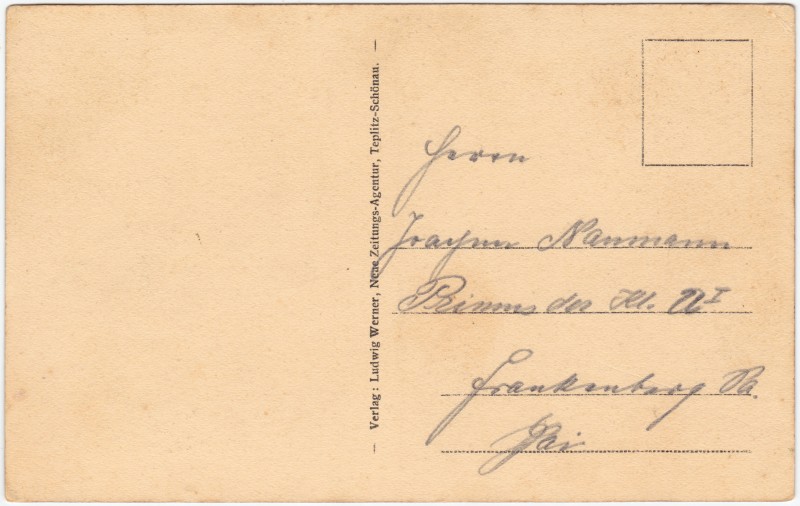 — Verlag: Ludwig Werner, Neue Zeitungs-Agentur, Teplitz-Schönau. —
Herrn
Joachim Naumann
Primus der Kl.
Frankenberg Sa.